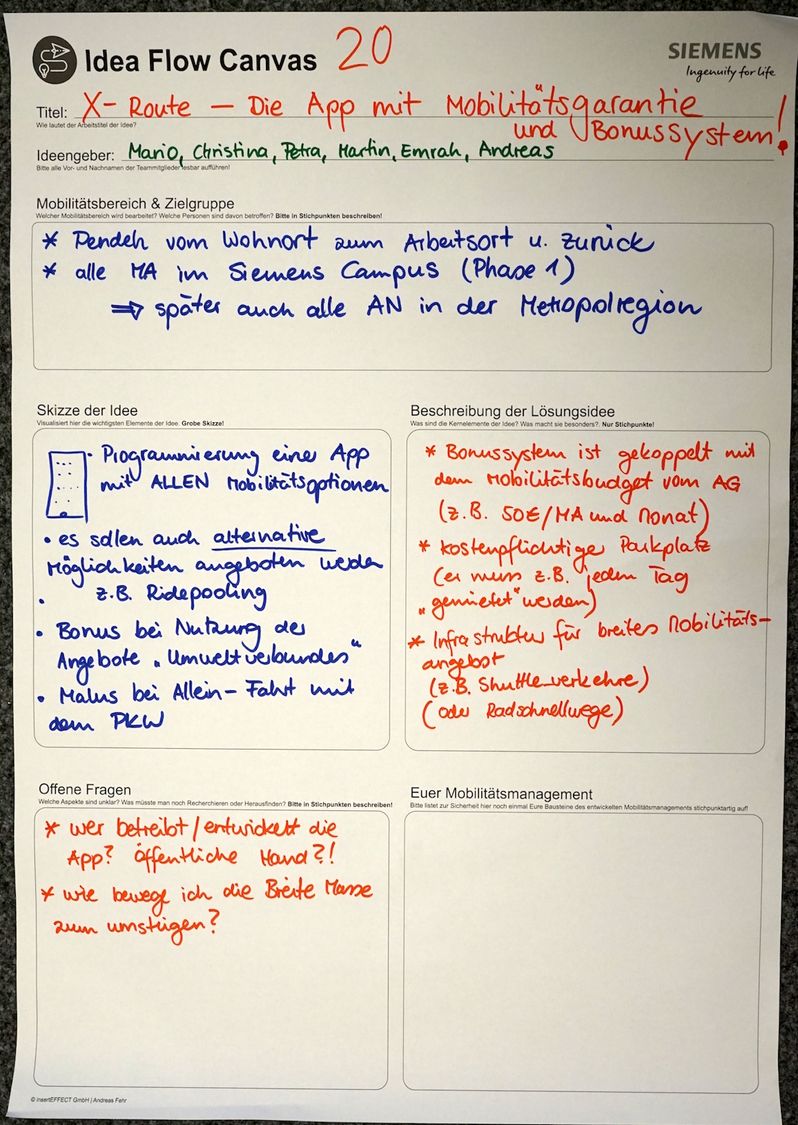 Idea Flow Canvas 20
SIEMENS
Ingenuity for life
Titel: X-Route – Die App mit Mobilitätsgarantie
und Bonussystem!
Wie lautet der Arbeitstitel der Idee?
Ideengeber: Mario, Christina, Petra, Martin, Emrah, Andreas
Bitte alle Vor- und Nachnamen der Teammitglieder lesbar aufführen!
Mobilitätsbereich & Zielgruppe
Welcher Mobilitätsbereich wird bearbeitet? Welche Personen sind davon betroffen? Bitte in Stichpunkten beschreiben!
* Pendeln vom Wohnort zum Arbeitsort u. zurück
* alle MA im Siemens Campus (Phase 1)
⇒ später auch alle AN in der Metropolregion
Skizze der Idee
Visualisiert hier die wichtigsten Elemente der Idee. Grobe Skizze!
• Programmierung einer App
mit ALLEN Mobilitätsoptionen
• es sollen auch alternative
Möglichkeiten angeboten werden
• z.B. Ridepooling
• Bonus bei Nutzung der
Angebote „Umweltverbundes"
• Malus bei Allein-Fahrt mit
dem PKW
Beschreibung der Lösungsidee
Was sind die Kernelemente der Idee? Was macht sie besonders?. Nur Stichpunkte!
* Bonussystem ist gekoppelt mit
dem Mobilitätsbudget vom AG
(z.B. 50€/MA und Monat)
* kostenpflichtiger Parkplatz
(er muss z.B. jeden Tag
„gemietet" werden)
* Infrastruktur für breites Mobilitäts-
angebot
(z.B. Shuttle-verkehre)
(oder Radschnellwege)
Offene Fragen
Welche Aspekte sind unklar? Was müsste man noch Recherchieren oder Herausfinden? Bitte in Stichpunkten beschreiben!
* wer betreibt/entwickelt die
App? öffentliche Hand?!
* wie bewege ich die Breite Masse
zum umsteigen?
Euer Mobilitätsmanagement
Bitte listet zur Sicherheit hier noch einmal Eure Bausteine des entwickelten Mobilitätsmanagements stichpunktartig auf!
© insertEFFECT GmbH | Andreas Fehr